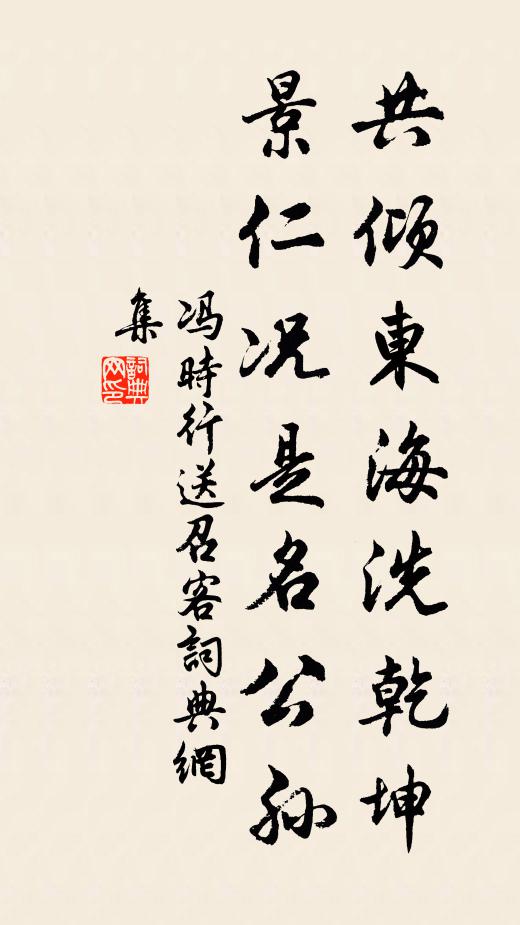 共傾東海洗乾坤
景仁况是名公孙
冯時行送召客詞典網
集
詞典网印